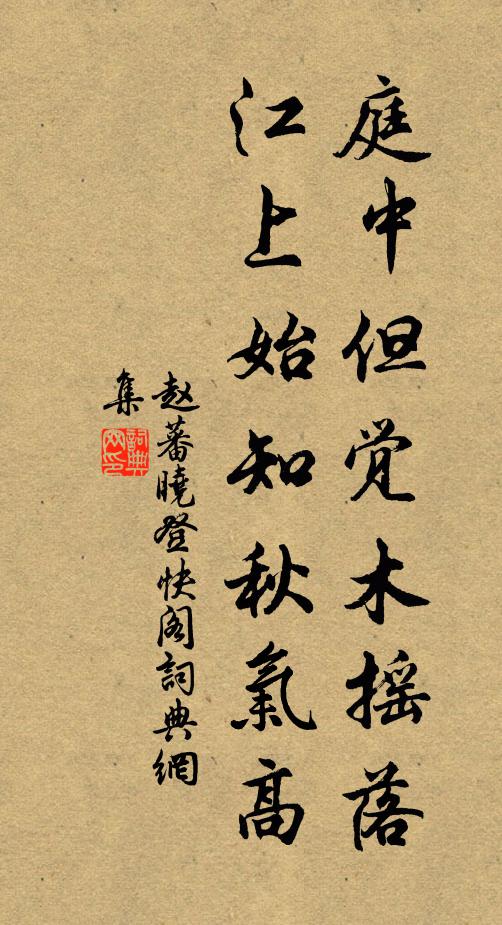 庭中但觉木摇落
江上始知秋氣高
赵蕃曉登快阁詞典網
集
詞典网印